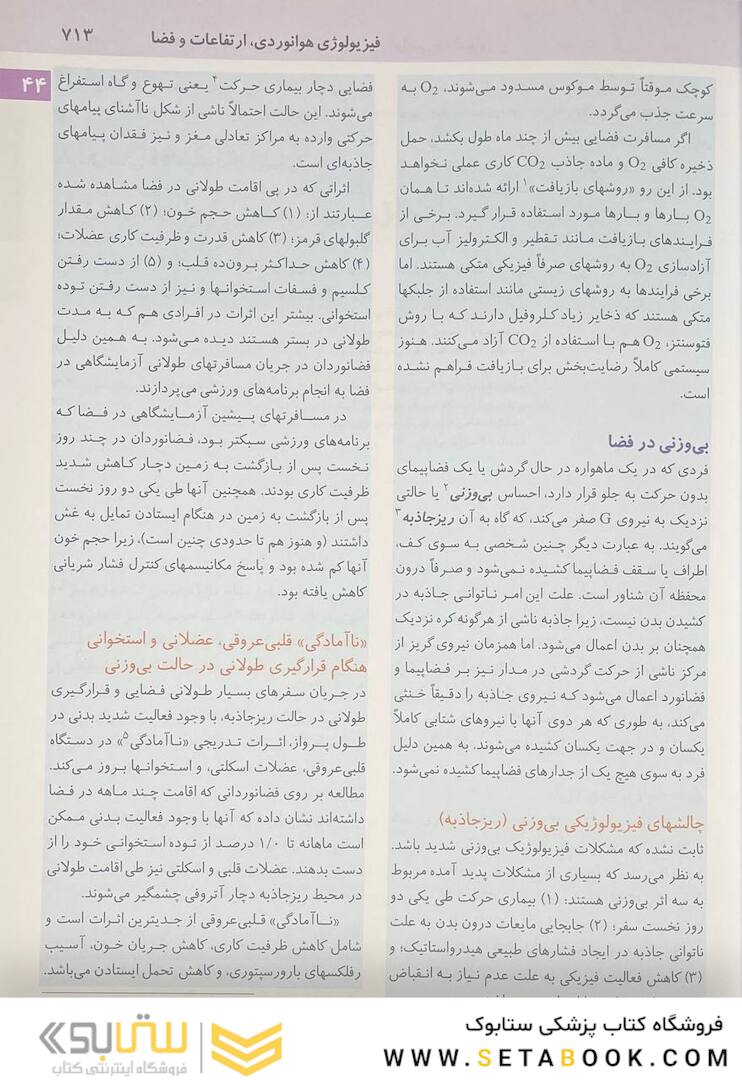 فیزیولوژی هوانوردی، ارتفاعات و فضا ۷۱۳
۴۴
کوچک موقتاً توسط موکوس مسدود می‌شوند، O2 به
سرعت جذب می‌گردد.
اگر مسافرت فضایی بیش از چند ماه طول بکشد، حمل
ذخیره کافی O2 و ماده جاذب CO2 کاری عملی نخواهد
بود. از این رو «روشهای بازیافت»۱ ارائه شده‌اند تا همان
O2 بارها و بارها مورد استفاده قرار گیرد. برخی از
فرایندهای بازیافت مانند تقطیر و الکترولیز آب برای
آزادسازی O2 به روشهای صرفاً فیزیکی متکی هستند. اما
برخی فرایندها به روشهای زیستی مانند استفاده از جلبکها
متکی هستند که ذخایر زیاد کلروفیل دارند که با روش
فتوسنتز، O2 هم با استفاده از CO2 آزاد می‌کنند. هنوز
سیستمی کاملاً رضایت‌بخش برای بازیافت فراهم نشده
است.
بی‌وزنی در فضا
فردی که در یک ماهواره در حال گردش یا یک فضاپیمای
بدون حرکت به جلو قرار دارد، احساس بی‌وزنی۲ یا حالتی
نزدیک به نیروی G صفر می‌کند، که گاه به آن ریزجاذبه۳
می‌گویند. به عبارت دیگر چنین شخصی به سوی کف،
اطراف یا سقف فضاپیما کشیده نمی‌شود و صرفاً درون
محفظه آن شناور است. علت این امر ناتوانی جاذبه در
کشیدن بدن نیست، زیرا جاذبه ناشی از هرگونه کره نزدیک
همچنان بر بدن اعمال می‌شود. اما همزمان نیروی گریز از
مرکز ناشی از حرکت گردشی در مدار نیز بر فضاپیما و
فضانورد اعمال می‌شود که نیروی جاذبه را دقیقاً خنثی
می‌کند، به طوری که هر دوی آنها با نیروهای شتابی کاملاً
یکسان و در جهت یکسان کشیده می‌شوند. به همین دلیل
فرد به سوی هیچ یک از جدارهای فضاپیما کشیده نمی‌شود.
چالشهای فیزیولوژیکی بی‌وزنی (ریزجاذبه)
ثابت نشده که مشکلات فیزیولوژیک بی‌وزنی شدید باشد.
به نظر می‌رسد که بسیاری از مشکلات پدید آمده مربوط
به سه اثر بی‌وزنی هستند: (۱) بیماری حرکت طی یکی دو
روز نخست سفر؛ (۲) جابجایی مایعات درون بدن به علت
ناتوانی جاذبه در ایجاد فشارهای طبیعی هیدرواستاتیک؛ و
(۳) کاهش فعالیت فیزیکی به علت عدم نیاز به انقباض
فضایی دچار بیماری حرکت۴ یعنی تهوع و گاه استفراغ
می‌شوند. این حالت احتمالاً ناشی از شکل ناآشنای پیامهای
حرکتی وارده به مراکز تعادلی مغز و نیز فقدان پیامهای
جاذبه‌ای است.
اثراتی که در پی اقامت طولانی در فضا مشاهده شده
عبارتند از: (۱) کاهش حجم خون؛ (۲) کاهش مقدار
گلبولهای قرمز؛ (۳) کاهش قدرت و ظرفیت کاری عضلات؛
(۴) کاهش حداکثر برون‌ده قلب؛ و (۵) از دست رفتن
کلسیم و فسفات استخوانها و نیز از دست رفتن توده
استخوانی. بیشتر این اثرات در افرادی هم که به مدت
طولانی در بستر هستند دیده می‌شود. به همین دلیل
فضانوردان در جریان مسافرتهای طولانی آزمایشگاهی در
فضا به انجام برنامه‌های ورزشی می‌پردازند.
در مسافرتهای پیشین آزمایشگاهی در فضا که
برنامه‌های ورزشی سبکتر بود، فضانوردان در چند روز
نخست پس از بازگشت به زمین دچار کاهش شدید
ظرفیت کاری بودند. همچنین آنها طی یکی دو روز نخست
پس از بازگشت به زمین در هنگام ایستادن تمایل به غش
داشتند (و هنوز هم تا حدودی چنین است)، زیرا حجم خون
آنها کم شده بود و پاسخ مکانیسمهای کنترل فشار شریانی
کاهش یافته بود.
«ناآمادگی» قلبی‌عروقی، عضلانی و استخوانی
هنگام قرارگیری طولانی در حالت بی‌وزنی
در جریان سفرهای بسیار طولانی فضایی و قرارگیری
طولانی در حالت ریزجاذبه، با وجود فعالیت شدید بدنی در
طول پرواز، اثرات تدریجی «ناآمادگی۵» در دستگاه
قلبی‌عروقی، عضلات اسکلتی، و استخوانها بروز می‌کند.
مطالعه بر روی فضانوردانی که اقامت چند ماهه در فضا
داشته‌اند نشان داده که آنها با وجود فعالیت بدنی ممکن
است ماهانه تا ۱/۰ درصد از توده استخوانی خود را از
دست بدهند. عضلات قلبی و اسکلتی نیز طی اقامت طولانی
در محیط ریزجاذبه دچار آتروفی چشمگیر می‌شوند.
«ناآمادگی» قلبی‌عروقی از جدیترین اثرات است و
شامل کاهش ظرفیت کاری، کاهش جریان خون، آسیب
رفلکسهای بارورسپتوری، و کاهش تحمل ایستادن می‌باشد.
فروشگاه کتاب پزشکی ستابوک
WWW.SETABOOK.COM
ستابوک
فروشگاه اینترنتی کتاب